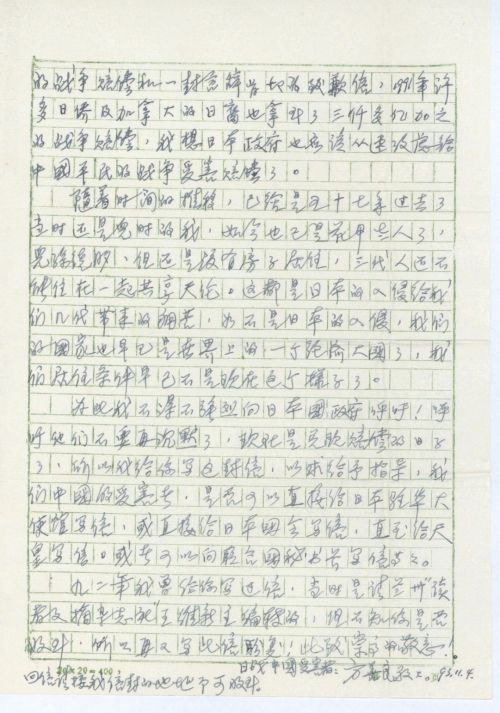 的战争赔偿和一封言辞皆切的致歉信，1991年许
多日侨及加拿大的日裔也拿到了三仟多亿加元
的战争赔偿，我想日本政府也应该从速考虑给
中國平民的战争受害赔偿了。
随着时间的推移，已经是五十七年过去了
当时还是儿时的我，如今也已是花甲老人了，
儿孙绕膝，但还是没有房子居住，三代人还不
能住在一起共享天伦。这都是日本的入侵给我
们几代带来的祸害，如不是日本的入侵，我们
的國家也早已是世界上的一个经济大國了，我
们居住条件早已不是现在这个样子了。
为此我不得不强烈向日本國政府呼吁！呼
吁他们不要再沉默了，现在是兑现赔偿的日子
了，所以我给你写这封信，以求给予指导，我
们中國的受害者，是否可以直接给日本驻华大
使馆写信，或直接给日本國会写信，直至给天
皇写信。或者可以向联合國秘书长写信
九二年我曾给你写过信，当时是请兰州"读
者文摘杂志社"主编转的，但不知你是否
收到，所以再又写此信 此致崇高的敬意！
20×20=400
日战中國受害者：方 93.11.4.
回信请按我信封的地址可收到。